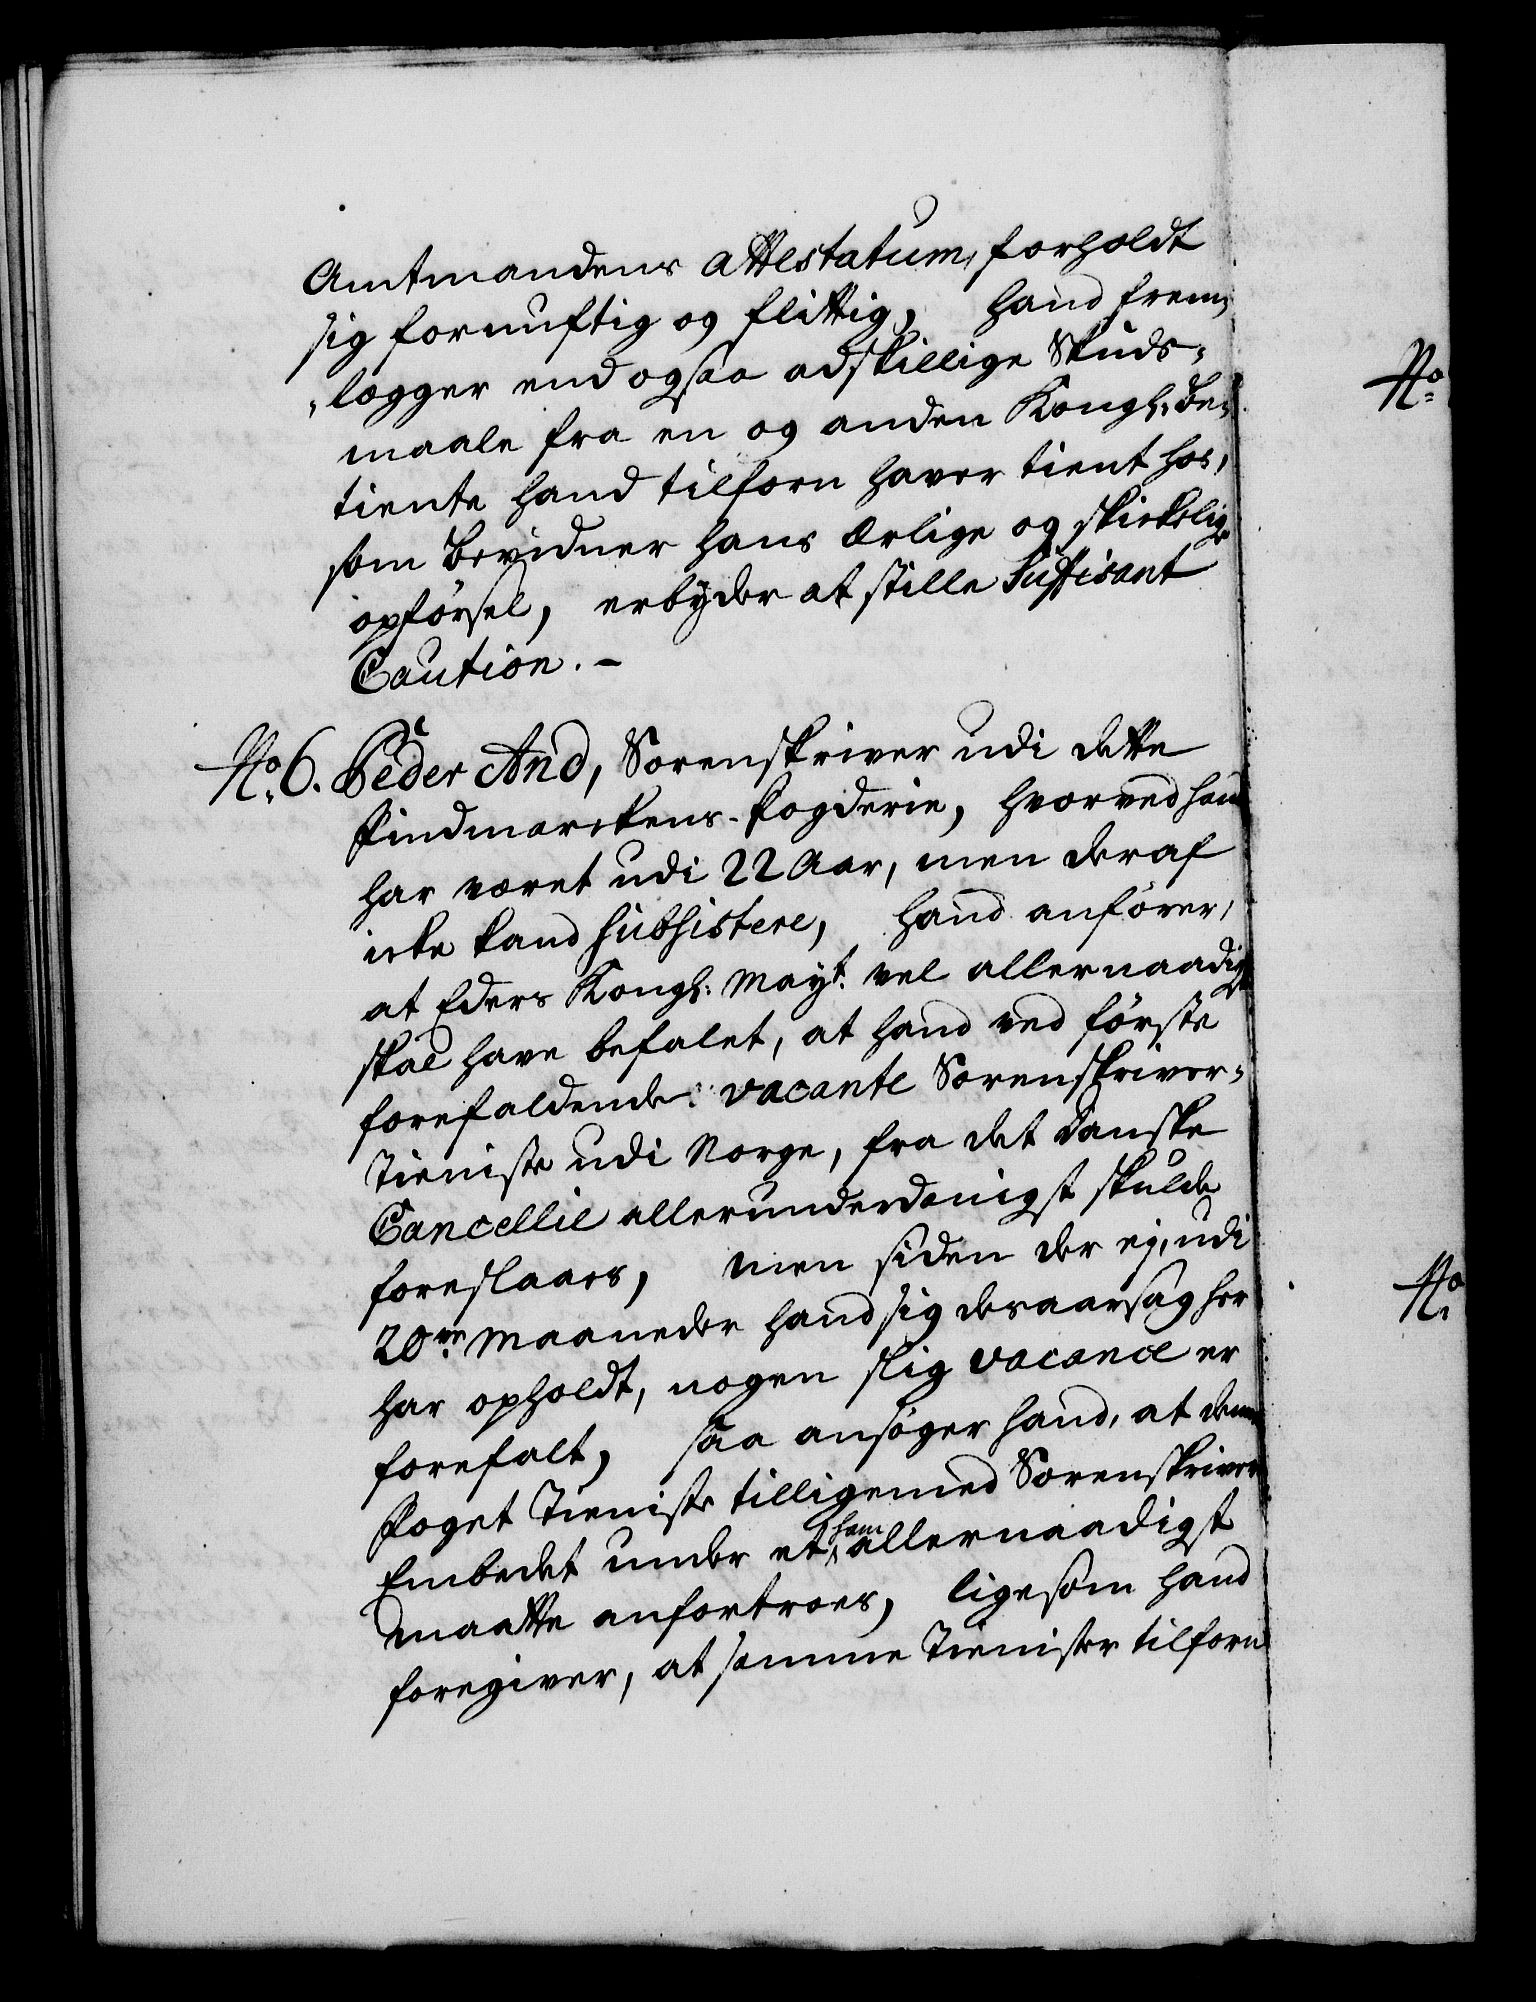 Amtmandens attestatum, forholdt
sig fornuftig og flittig, hand frem,
,lægger end ogsaa adskillige Skuds-
maale fra en og anden Kongl: Be-
tiente hand tilforn haver tient hos,
som bevidner hans ærlige og skickelige
opførsel, erbyder at stille Suffisant
Caution. -
No. 6. Peder And, Sorenskriver udi dette
Findmarckens-Fogderie, hvorved hand
har været udi 22 Aar, men deraf
icke kand subsistere, hand anfører,
at Eders Kongl: Mayt. vel allernaadigst
skal have befalet, at hand ved første
forefaldende vacante Sorenskriver-
Tieniste udi Norge, fra det Danske
Cancellie allerunderdanigst skulde
foreslaaes, men siden der ej, udi
20ve Maaneder hand sig desaarsag her
har opholdt, nogen slig vacance er
forefalt, saa ansøger hand, at denne
Foget Tieniste tilligemed Sorenskriver
Embedet under et, ham allernaadigst
maatte anfortroes, ligesom hand
foregiver, at samme Tienister tilforn
No
No.